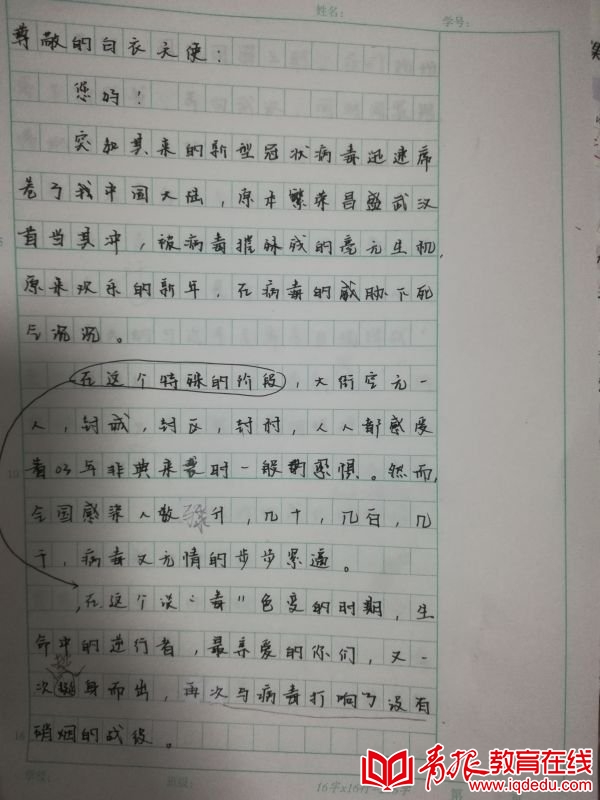 姓名：
学号：
尊敬的白衣天使：
您好！
突如其来的新型冠状病毒迅速席
卷了我中国大陆，原本繁荣昌盛武汉
首当其冲，被病毒摧残的毫无生机，
原来欢乐的新年，在病毒的威胁下死
气沉沉。
在这个特殊的阶段，大街空无一
人，封城，封区，封村，人人都感受
着03年非典来袭时一般的恐惧。然而，
全国感染人数骤升，几十，几百，几
千，病毒又无情的步步紧逼。
，在这个谈“毒”色变的时期，生
命中的逆行者，最亲爱的你们，又一
挺
次身而出，再次与病毒打响了没有
硝烟的战役。
学校：
班级：
16字x16行
第
青报教育在线
www.iqdedu.com